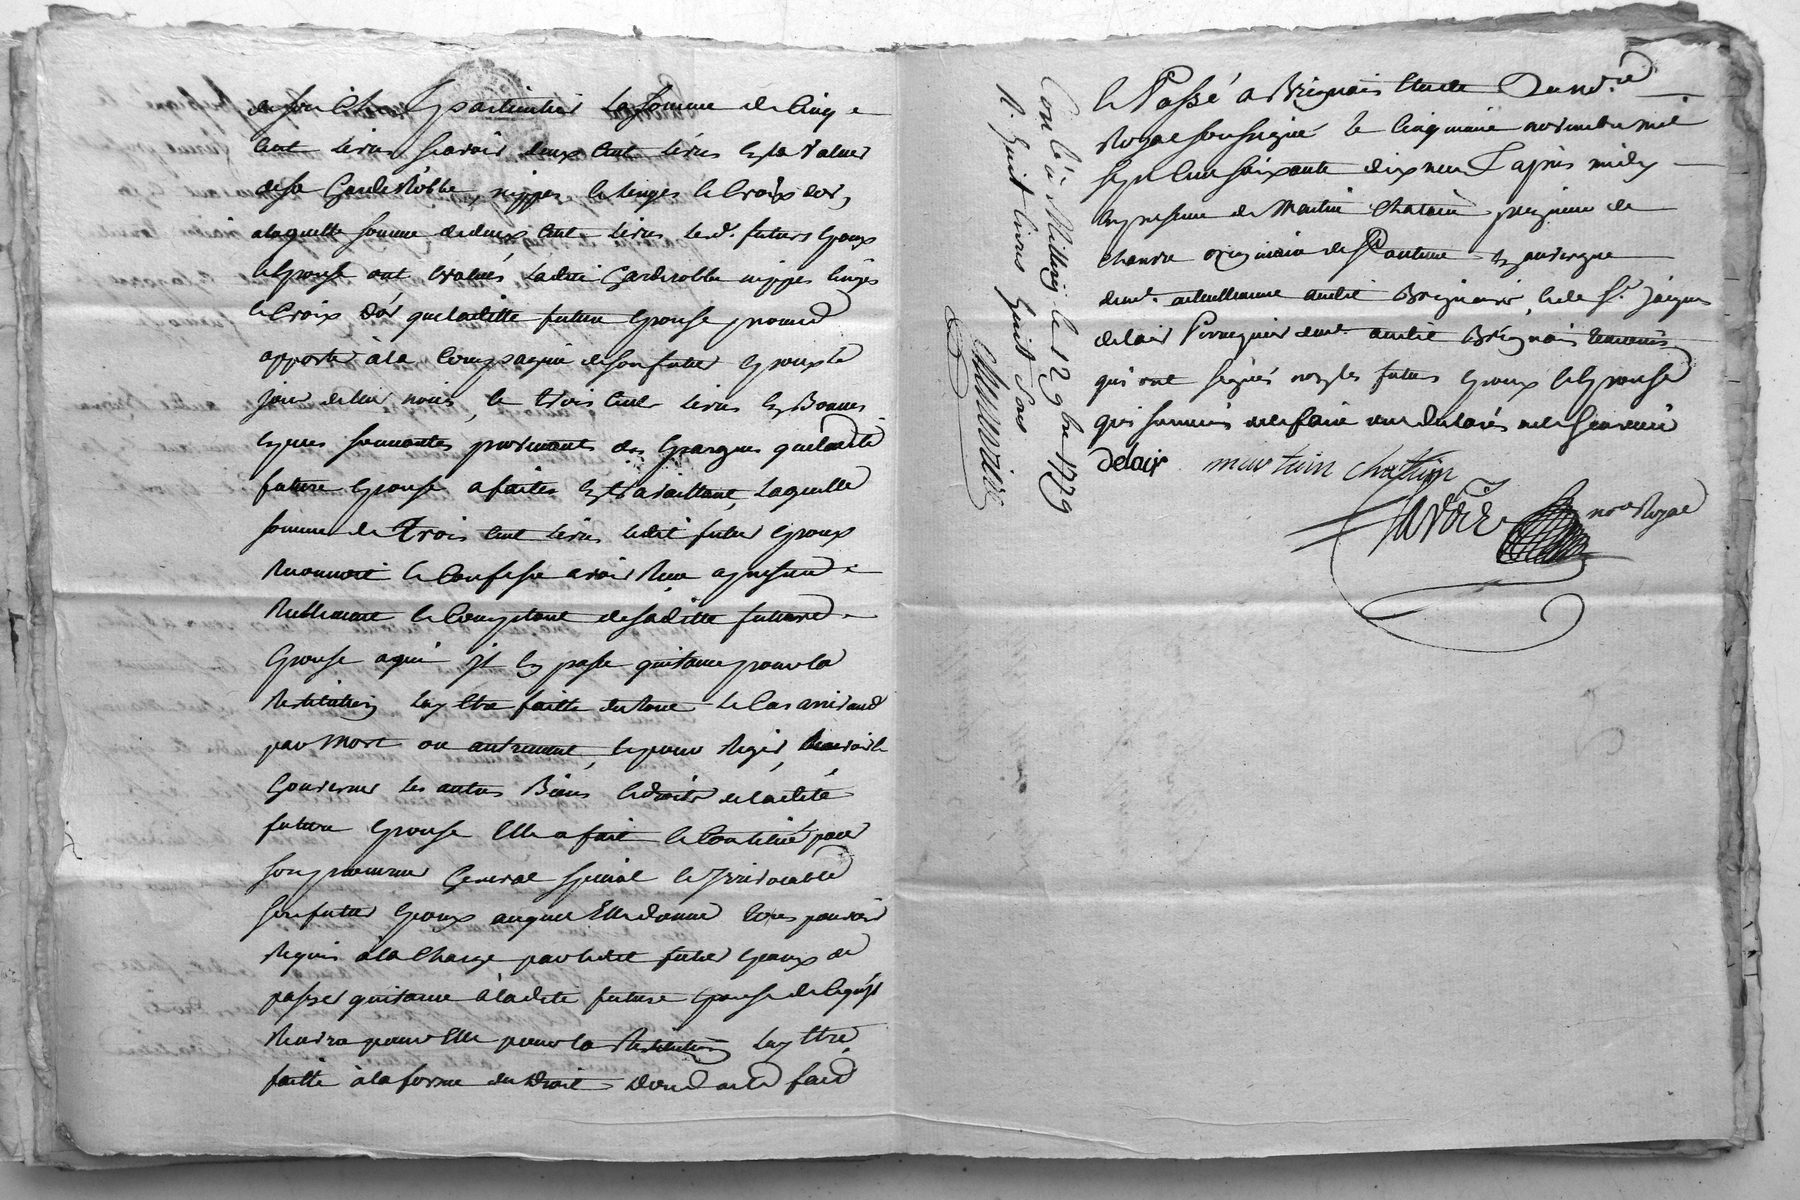 de son Chef particulier la Somme de Cinq
Cent livres scavoir deux Cent livres en la valeur
de sa Garde Robbe, nippes, et linges et Croix d'or,
a laquelle somme de deux Cent livres lesd. futurs Epoux
et Epouse ont Evalués ladite Garderobbe nippes linges
et Croix D'or que laditte future Epouse promet
apporter à la Compagnie de son futur Epoux le
jour de leur noces, et trois Cent livres En Bonnes
Especes sonnantes provenant des Epargnes que ladite
future Epouse a faites En travaillant, Laquelle
somme de Trois Cent livres ledit futur Epoux
Reconnoit et Confesse avoir Reçu apresent
Réellement et Comptant de saditte future
Epouse a qui jl En passe quitance pour la
Restitution En Etre faitte du tout le Cas arrivant
par mort ou autrement, et pour Regir, Recevoir et
Gouverner les autres Biens et droits de ladite
future Epouse Elle a fait et Constitué pour
son procureur General Special et Jrrévocable
son futur Epoux auquel Elle donne tous pouvoirs
Requis à la Charge par ledit futur Epoux de
passer quitance à ladite future Epouse de Ce qu'jl
Recevra pour Elle pour la Restitution En Etre
faitte à la forme du Droit Dont acte fait
Con.lé à Millery le 12 9bre 1779
R. huit livres huit sous
et Passé a Brignais Etude Du no.re
Royal soussigné le Cinquieme novembre mil
sept Cent soixante dix neuf L'apres midy
En presence de Martin Chatain peigneur de
Chanvre originaire de en auvergne
dem.t actuellement audit Brignais, et de S.r Jacques
delair Perruquier dem.t audit Brignais temoins
qui ont signés non les futurs Epoux et Epouse
qui sommés de le faire ont declarés ne le scavoir
delair martuin chattiin
favre no.re Royal